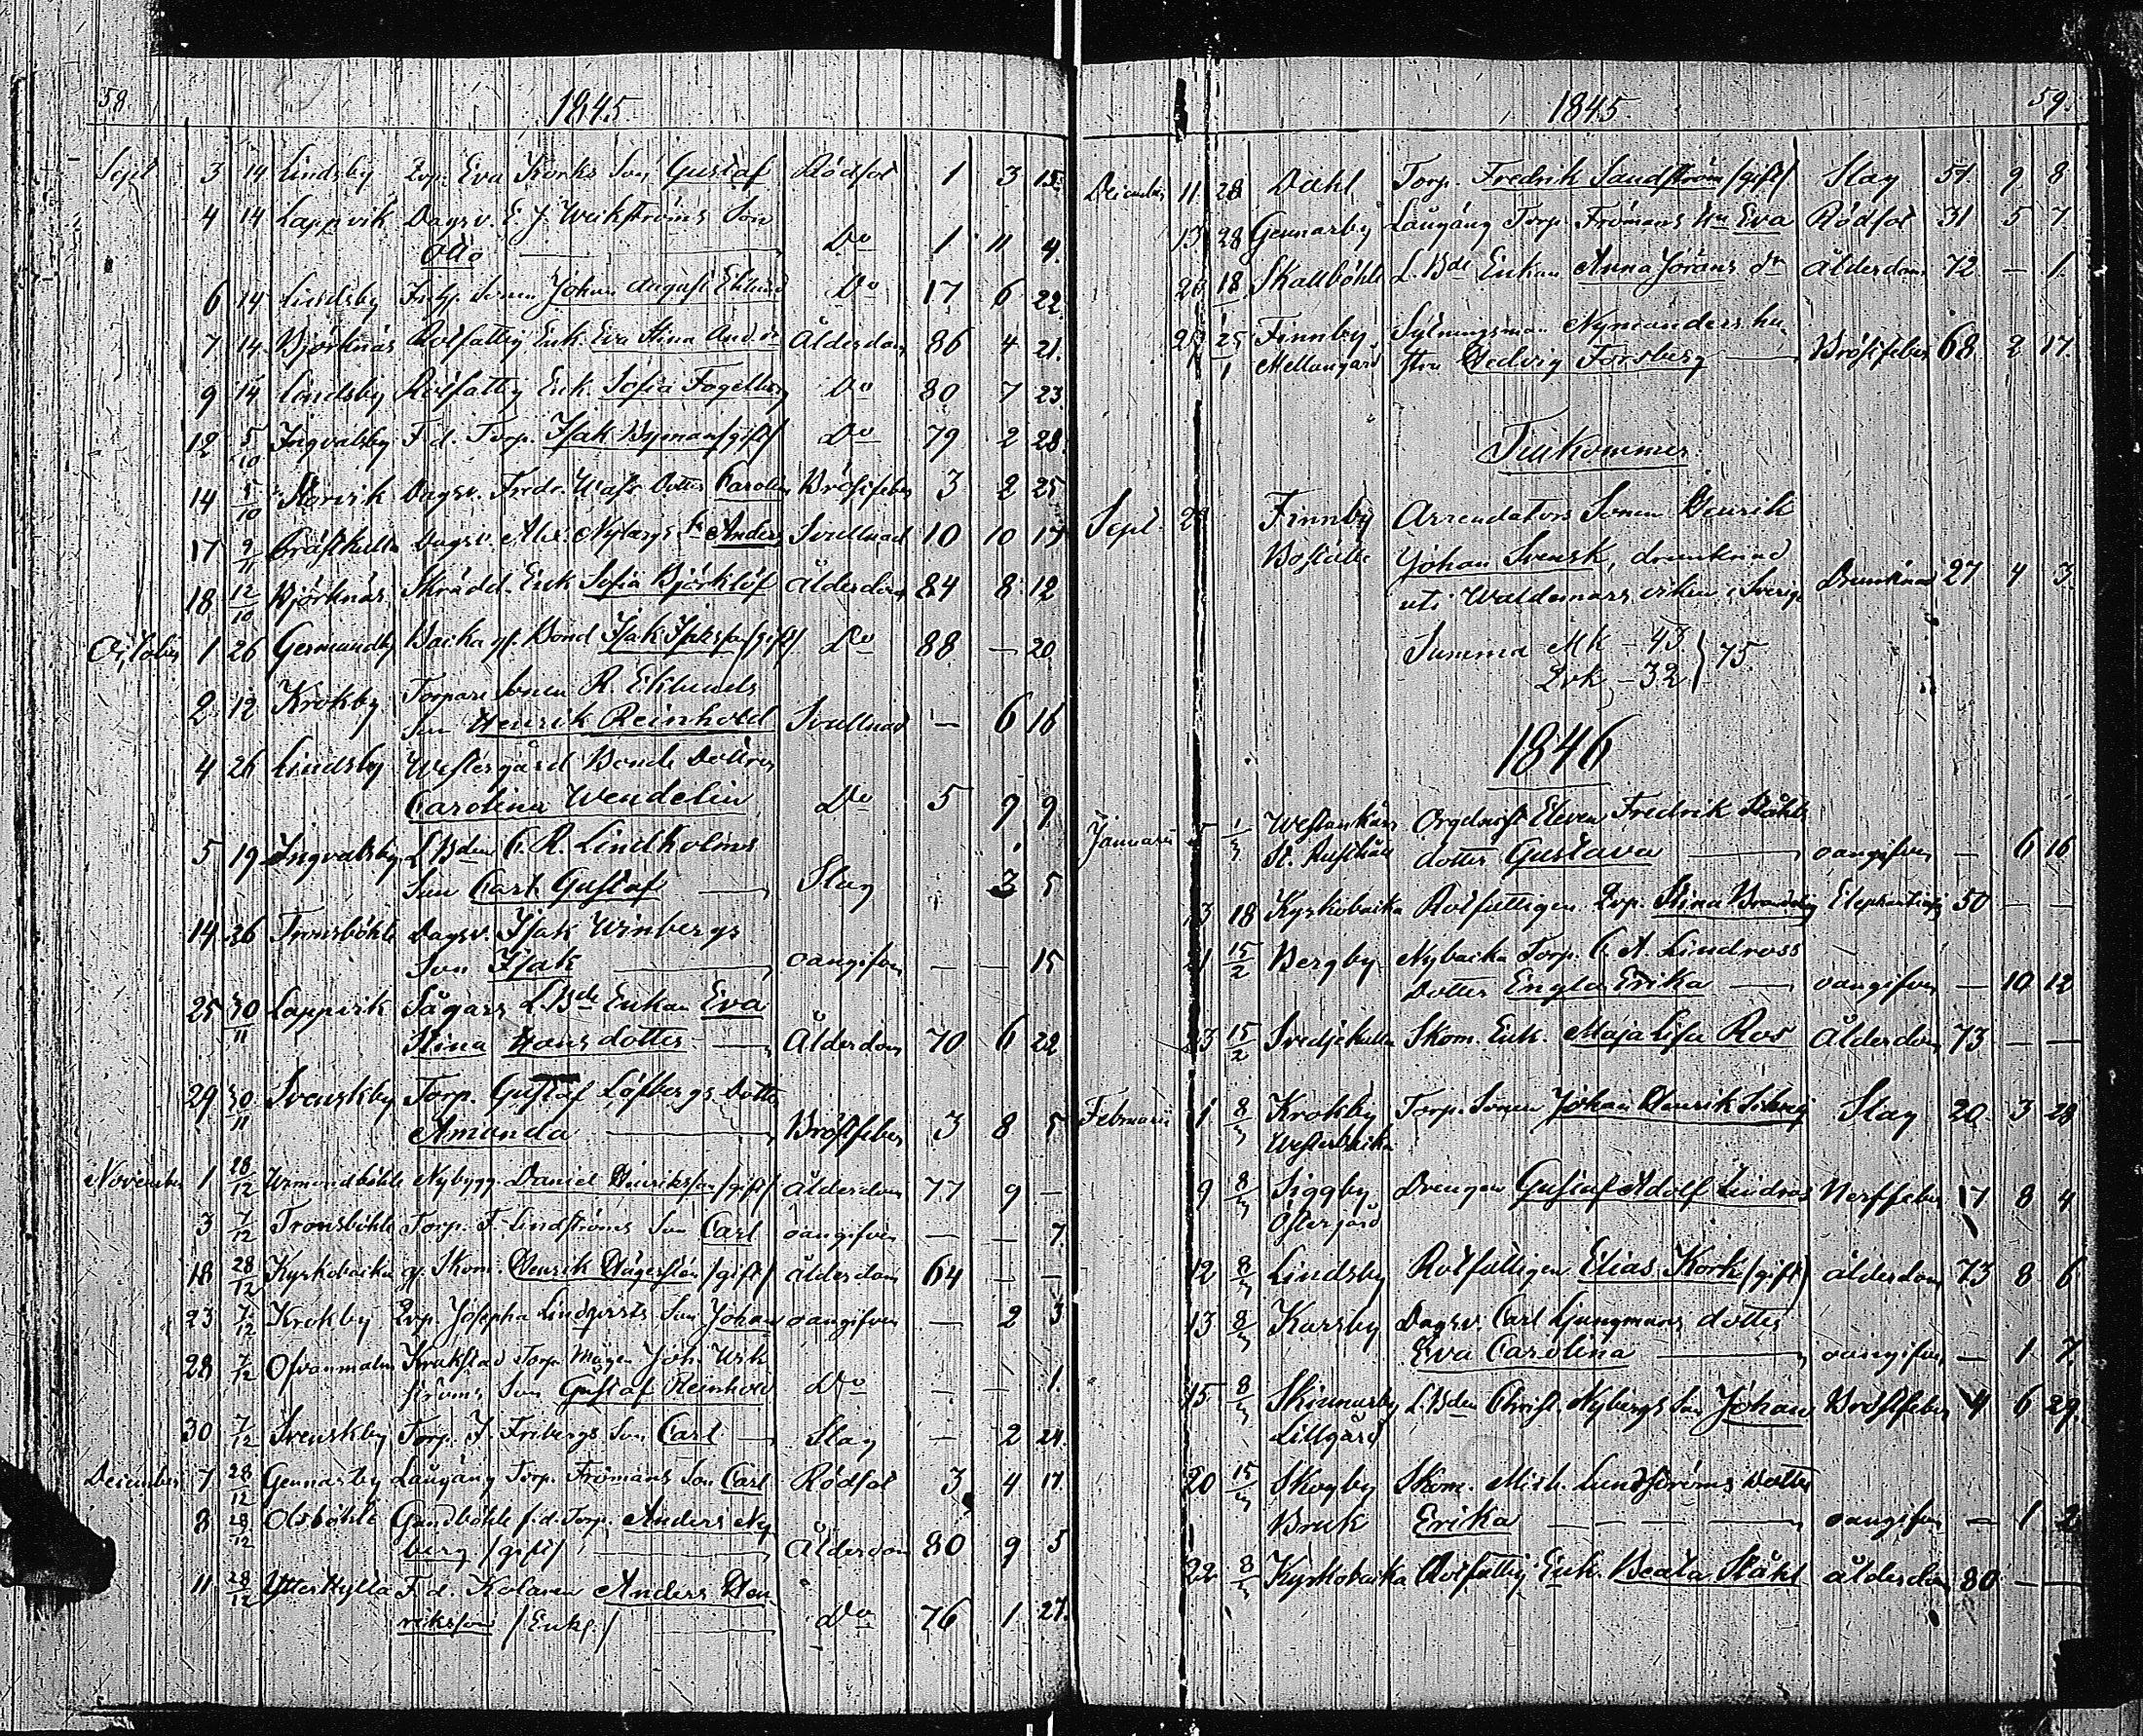 58.
1845
Sept 3 14 Lindsby Qvp. Eva Korks Son Gustaf Rödsot 1 3 15
4 14 Lappvik Dagsv. E. J. Weikströms Son
Otto Do 1 11 4.
6 14 Lindsby Johan August Eklund Do 17 6 22
7 14 Björknäs Rotfattig Enk. Eva Stina And.dr Ålderdom 86 4 21.
9 14 Lindsby Rotfattig Enk. Sofia Fogelberg Do 80 7 23
12 5/10 Ingvalsby F. d. Torp. Isak Nyman /gift/ Do 79 2 28
14 5/10 Storvik Dagsv. Fredr. Dotter Carolin Bröstfeber 3 2 25
17 9/11 Dagsv. Alex. Nybergs Sn Anders Svullnad 10 10 17
18 12/10 Björknäs Skrädd. Enk Sofia Björklöf Ålderdom 84 8 12
October 1 26 Germundby Backa gf. Bond Isak Isaksson /gift/ Do 88 — 20
2 12 Krokby Torpare Sonen R. Eklunds
Son Henrik Reinhold Svullnad — 6 16
4 26 Lindsby Westergård Bonde Dottren
Carolina Wendelin Do 5 9 9
5 19 Ingvalsby L. Bden C. R. Lindholms
Son Carl Gustaf Slag 3 5
14 26 Tronsböhle Dagsv. Isak Winbergs
Son Isak oangifven — — 15
25 30/11 Lappvik Sågars L. Bde Enkan Eva
Stina Hansdotter Ålderdom 70 6 22
29 30/11 Svenskby Torp. Gustaf Löfbergs Dotter
Amanda Bröstfeber 3 8 5
November 1 28/12 Nybygg. Daniel Henriksson /gift/ ålderdom 77 9 —
3 7/12 Tronsböhle Torp. F. Lindströms Son Carl oangifven — — 7
18 28/12 Kyrkobacka gf. Skom. Henrik Hägerflön /gift/ ålderdom 64 — —
23 7/12 Krokby Qvp. Josepha Lindqvists Son Johan oangifven — 2 3
28 7/12 Ofvanmalm Krakstad Torp. Mågen Joh. Wik
ströms Son Gustaf Reinhold Do — — 1.
30 7/12 Svenskby Torp. J. Fribergs Son Carl Slag — 2 24.
December 7 28/12 Gennarby Laugäng Torp. Frömans Son Carl Rödsot 3 4 17
8 28/12 Olsböhle Gundböhle f. d. Torp. Anders Ny
berg /gift/ Ålderdom 80 9 5
11 28/12 Ytterkylla F. d. Kolaren Anders Hen
riksson /Enkl/ Do 76 1 27.
1845.
59.
December 11 28 Dahl Torp. Fredrik Sandström /gift/ Slag 57 9 8
13 28 Gennarby Laugäng Torp. Frömans Hu Eva Rödsot 31 5 7.
20 18/1 Skallböhle L. Bde Enkan Anna Jörans dr Ålderdom 72 — 1.
25/1 Finnby Sytningsman Nymanders hu
Mellangård stru Hedvig Forsberg Bröstfeber 68 2 17.
Tillkommer.
Sept. Finnby Arrendators Sonen Henrik
Boställe Johan Svensk, drunknad
uti Waldemars viken i Sverige Drunknad 27 4 3.
Summa Mk — 43
Qvk — 32 } 75
1846
Januari 5 1/3 Westankärr Orgelnist Eleven Fredrik Ståhls
dotter Gustava oangifven — 6 16
13 18 Kyrkobacka Rotfattigen Qvp. Stina Elephantiasis 50 — —
21 15/2 Bergby Nybacka Torp. C. A. Lindroos
Dotter Engla Erika oangifven — 10 12
23 15/2 Svedjekulla Skom. Enk. Maja Lisa Ros Ålderdom 73 — —
Februarii 1 8/3 Krokby Torp. Sonen Johan Henrik Slag 20 3 28
Westerbacka
9 8/3 Siggby Drengen Gustaf Adolf Lindros Nerffeber 17 8 4
Östergård
12 8/3 Lindsby Rotfattigen Elias Kork /gift/ ålderdom 73 8 6
13 8/3 Karsby Dagsv. Carl Ljungmans dotter
Eva Carolina oangifven — 1 7
15 8/3 Skinnarby L. Bden Christ. Nybergs Son Johan Bröstfeber 4 6 29.
Lillgård
20 15/3 Skogby Skom. Mich. Lundströms Dotter
Bruk Erika oangifven — 1 2
22 8/3 Kyrkobacka Rotfattig Enk. Beata Ståhl ålderdom 80 — —